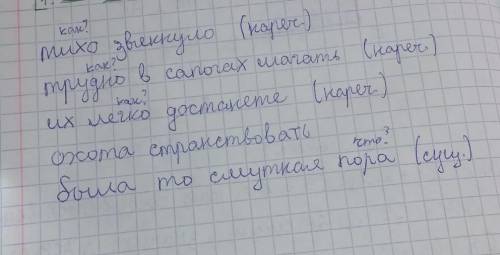 как?
тихо звякнуло (нареч.)
как?
трудно в сапогах шагать (нареч.)
как?
их легко достанете (нареч.)
охота странствовать
что?
была то смутная пора (сущ.)